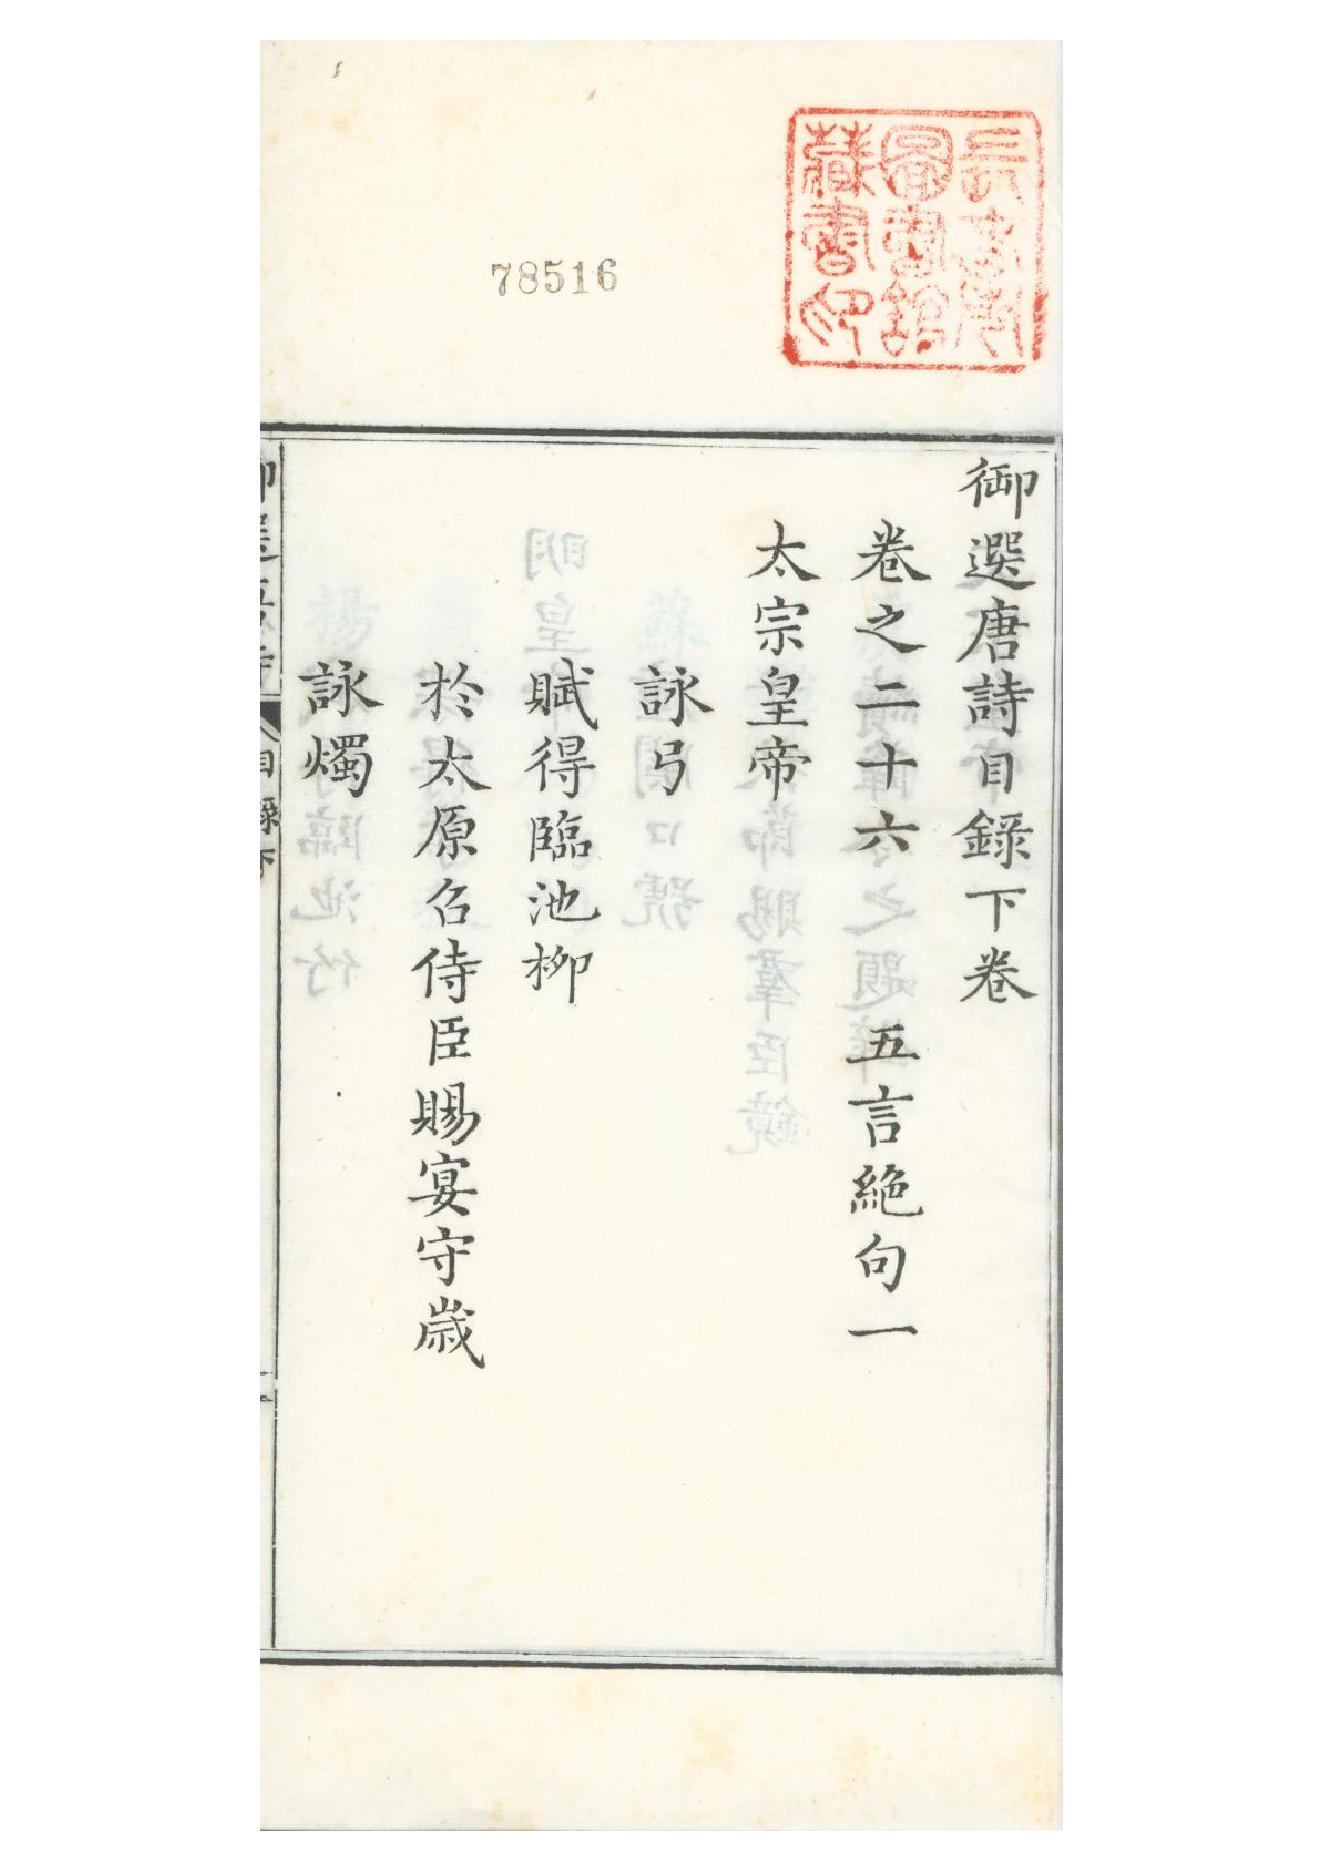 御選唐詩目錄下卷
卷之二十六 五言絶句一
太宗皇帝
詠弓
賦得臨池柳
於太原召侍臣賜宴守歲
詠燭
目錄下
圖書館
藏書印
78516